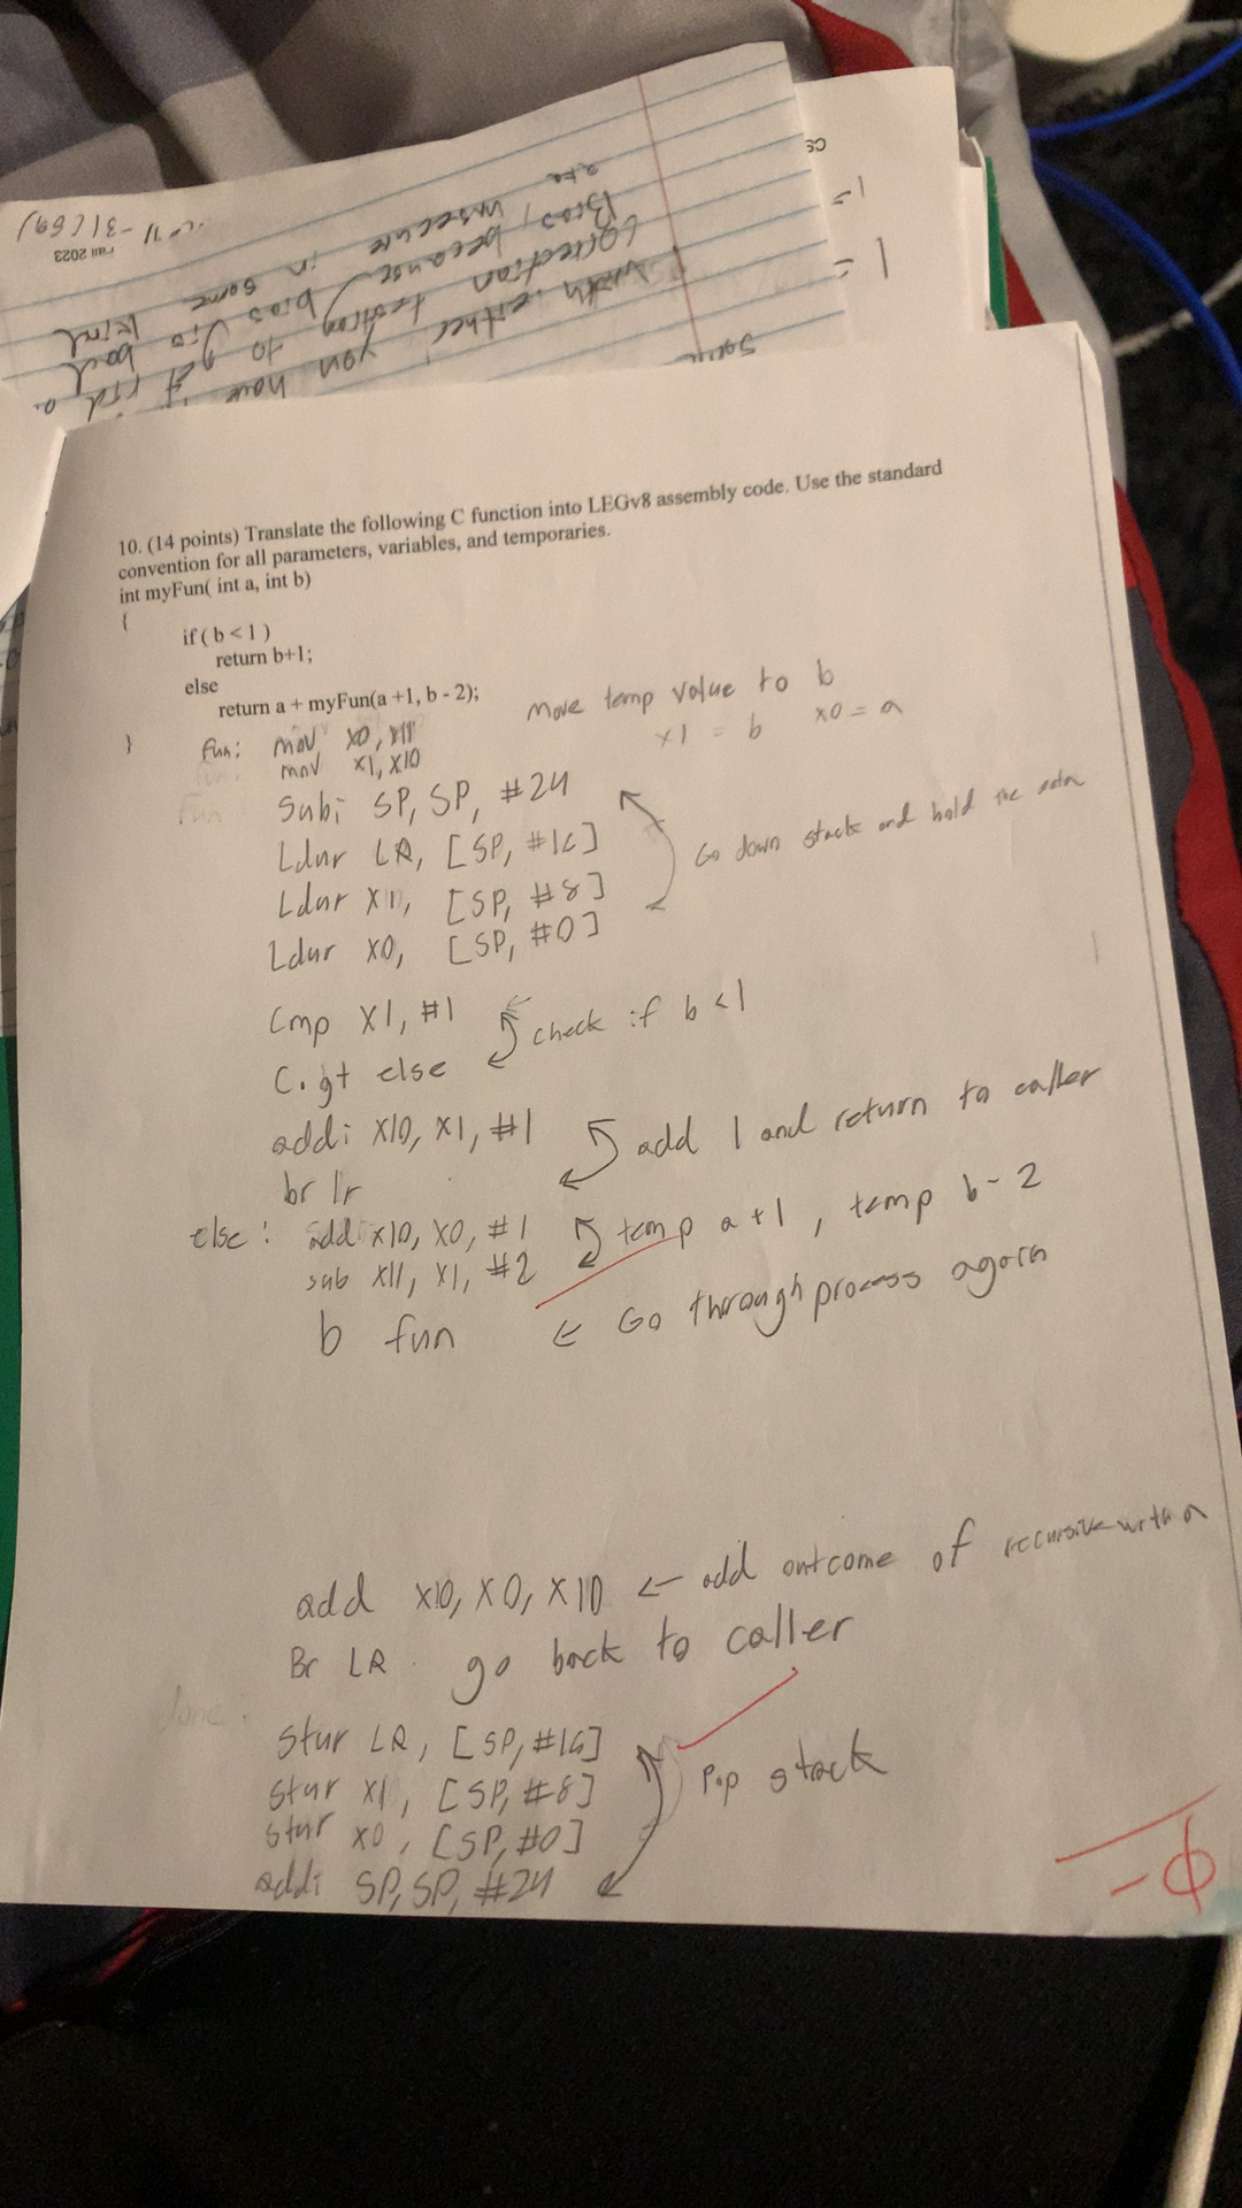 Fall 2023
CS
1=
1=
some
with either, you have
correction testing to get rid a.
Bias, because bias is bad
insecure in some kind
are
10. (14 points) Translate the following C function into LEGv8 assembly code. Use the standard
convention for all parameters, variables, and temporaries.
int myFun( int a, int b)
{
if ( b < 1 )
return b+1;
else
return a + myFun(a +1, b - 2);
}
Move temp value to b
x1 = b x0 = a
fun: mov x0, x11
mov x1, x10
Fun
Subi SP, SP, #24
Ldur LR, [SP, #16]
Ldur X1, [SP, #8]
Ldur X0, [SP, #0]
Go down stack and hold the data
Cmp X1, #1
C.gt else
check if b < 1
addi X10, X1, #1
br lr
add 1 and return to caller
else: add x10, X0, #1
sub x11, X1, #2
temp a + 1, temp b - 2
b fun ← Go through process again
add X10, X0, X10 ← add outcome of recursive with a
Br LR. go back to caller
done:
Stur LR, [SP, #16]
Stur X1, [SP, #8]
Stur X0, [SP, #0]
addi SP, SP, #24
Pop stack